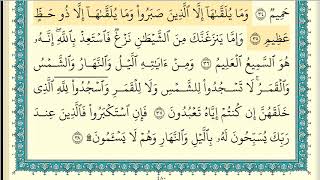 حَمِيمٌ ﴿٣٤﴾ وَمَا يُلَقَّىٰهَآ إِلَّا ٱلَّذِينَ صَبَرُوا۟ وَمَا يُلَقَّىٰهَآ إِلَّا ذُو حَظٍّ
عَظِيمٍ ﴿٣٥﴾ وَإِمَّا يَنزَغَنَّكَ مِنَ ٱلشَّيْطَٰنِ نَزْغٌ فَٱسْتَعِذْ بِٱللَّهِ ۖ إِنَّهُۥ هُوَ
ٱلسَّمِيعُ ٱلْعَلِيمُ ﴿٣٦﴾ وَمِنْ ءَايَٰتِهِ ٱلَّيْلُ وَٱلنَّهَارُ وَٱلشَّمْسُ
وَٱلْقَمَرُ ۚ لَا تَسْجُدُوا۟ لِلشَّمْسِ وَلَا لِلْقَمَرِ وَٱسْجُدُوا۟ لِلَّهِ ٱلَّذِى
خَلَقَهُنَّ إِن كُنتُمْ إِيَّاهُ تَعْبُدُونَ ﴿٣٧﴾ فَإِنِ ٱسْتَكْبَرُوا۟ فَٱلَّذِينَ عِندَ
رَبِّكَ يُسَبِّحُونَ لَهُۥ بِٱلَّيْلِ وَٱلنَّهَارِ وَهُمْ لَا يَسْـَٔمُونَ ۩ ﴿٣٨﴾